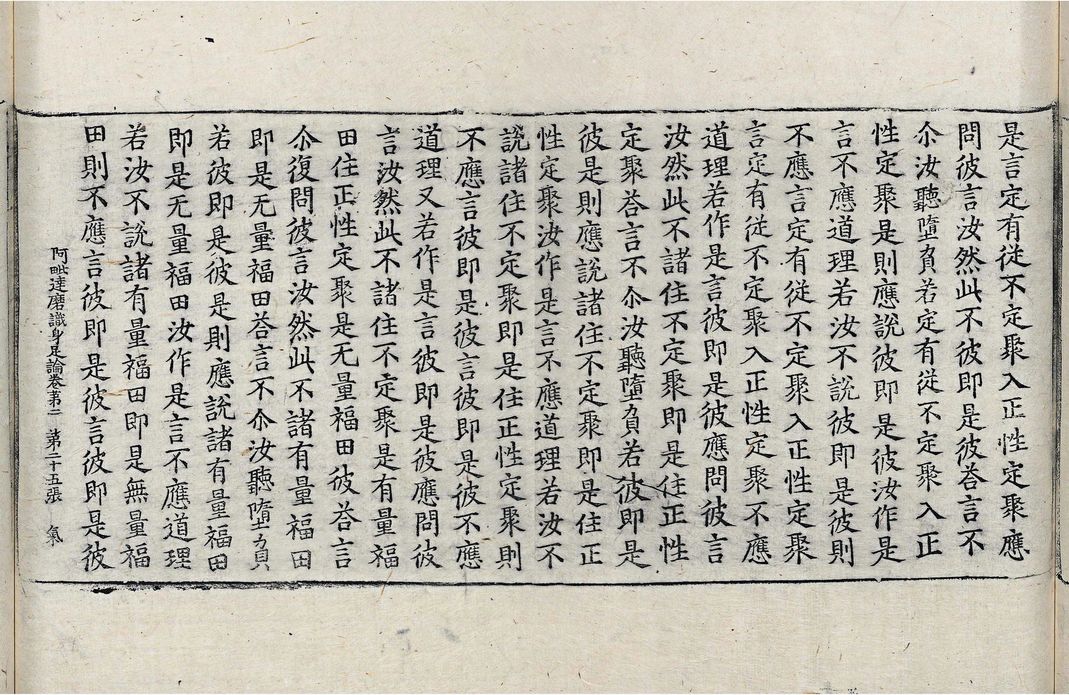 是言定有從不定聚入正性定聚應
問彼言汝然此不彼即是彼荅言不
尒汝聽墮負若定有從不定聚入正
性定聚是則應說彼即是彼汝作是
言不應道理若汝不說彼即是彼則
不應言定有從不定聚入正性定聚
言定有從不定聚入正性定聚不應
道理若作是言彼即是彼應問彼言
汝然此不諸住不定聚即是住正性
定聚荅言不尒汝聽墮負若彼即是
彼是則應說諸住不定聚即是住正
性定聚汝作是言不應道理若汝不
說諸住不定聚即是住正性定聚則
不應言彼即是彼言彼即是彼不應
道理又若作是言彼即是彼應問彼
言汝然此不諸住不定聚是有量福
田住正性定聚是无量福田彼荅言
尒復問彼言汝然此不諸有量福田
即是无量福田荅言不尒汝聽墮負
若彼即是彼是則應說諸有量福田
即是无量福田汝作是言不應道理
若汝不說諸有量福田即是無量福
田則不應言彼即是彼言彼即是彼
阿毗達磨識身足論卷第二 第二十五張 氣